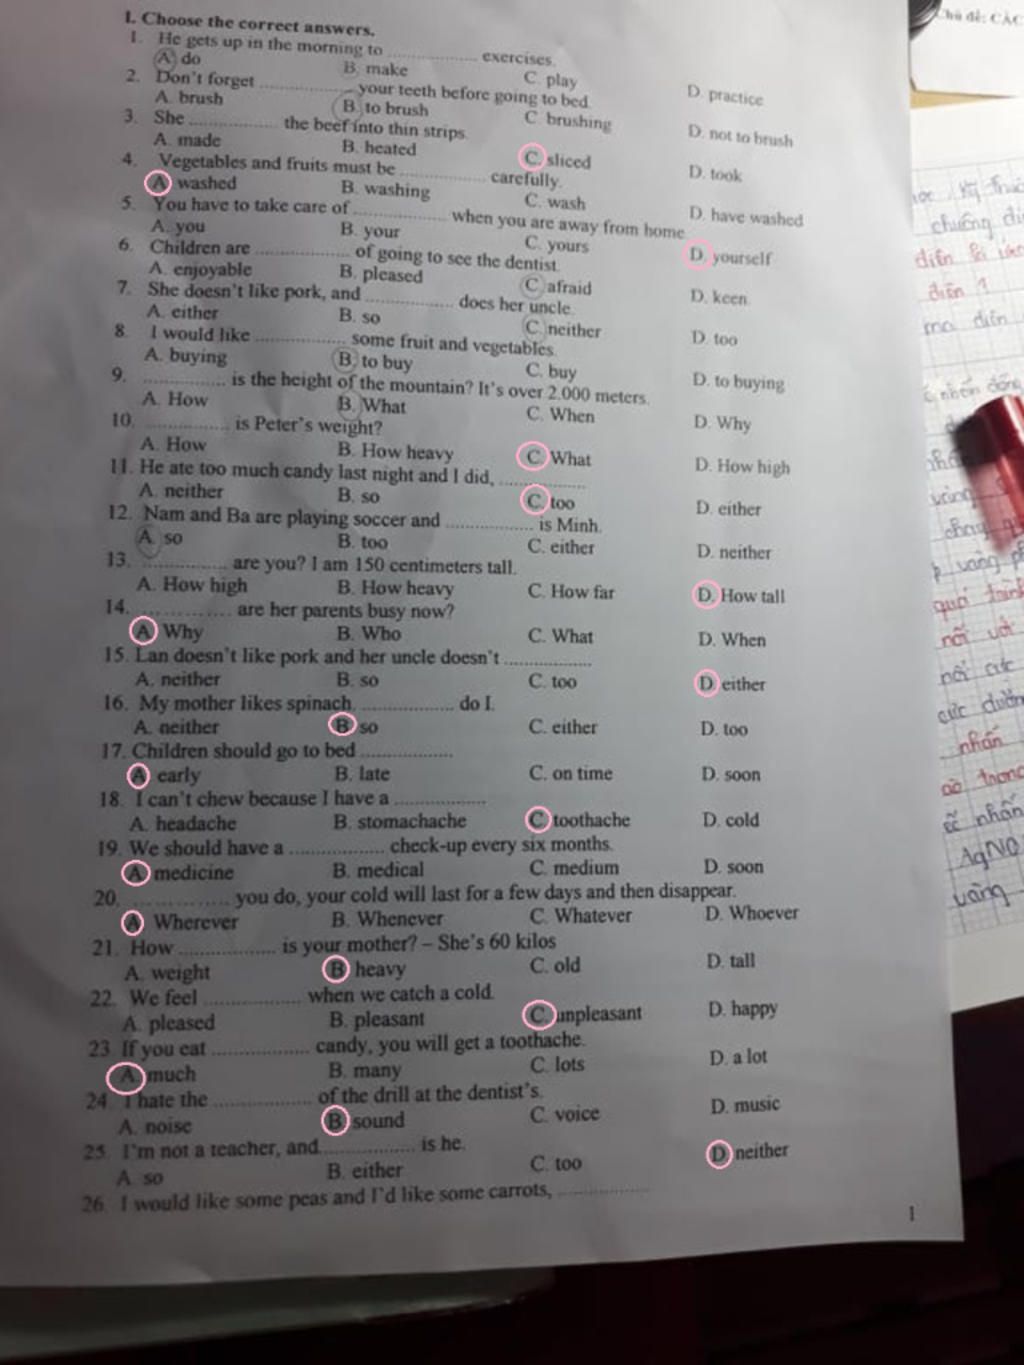 I. Choose the correct answers.
1. He gets up in the morning to .................. exercises.
A. do B. make C. play D. practice
2. Don't forget .................. your teeth before going to bed.
A. brush B. to brush C. brushing D. not to brush
3. She .................. the beef into thin strips.
A. made B. heated C. sliced D. took
4. Vegetables and fruits must be .................. carefully.
A. washed B. washing C. wash D. have washed
5. You have to take care of .................. when you are away from home.
A. you B. your C. yours D. yourself
6. Children are .................. of going to see the dentist.
A. enjoyable B. pleased C. afraid D. keen
7. She doesn't like pork, and .................. does her uncle.
A. either B. so C. neither D. too
8. I would like .................. some fruit and vegetables.
A. buying B. to buy C. buy D. to buying
9. .................. is the height of the mountain? It's over 2.000 meters.
A. How B. What C. When D. Why
10. .................. is Peter's weight?
A. How B. How heavy C. What D. How high
11. He ate too much candy last night and I did, ..................
A. neither B. so C. too D. either
12. Nam and Ba are playing soccer and .................. is Minh.
A. so B. too C. either D. neither
13. .................. are you? I am 150 centimeters tall.
A. How high B. How heavy C. How far D. How tall
14. .................. are her parents busy now?
A. Why B. Who C. What D. When
15. Lan doesn't like pork and her uncle doesn't ..................
A. neither B. so C. too D. either
16. My mother likes spinach, .................. do I.
A. neither B. so C. either D. too
17. Children should go to bed ..................
A. early B. late C. on time D. soon
18. I can't chew because I have a ..................
A. headache B. stomachache C. toothache D. cold
19. We should have a .................. check-up every six months.
A. medicine B. medical C. medium D. soon
20. .................. you do, your cold will last for a few days and then disappear.
A. Wherever B. Whenever C. Whatever D. Whoever
21. How .................. is your mother? – She's 60 kilos
A. weight B. heavy C. old D. tall
22. We feel .................. when we catch a cold.
A. pleased B. pleasant C. unpleasant D. happy
23. If you eat .................. candy, you will get a toothache.
A. much B. many C. lots D. a lot
24. I hate the .................. of the drill at the dentist's.
A. noise B. sound C. voice D. music
25. I'm not a teacher, and .................. is he.
A. so B. either C. too D. neither
26. I would like some peas and I'd like some carrots, ..................
1
Chủ đề: CÁC
chuông
diện
điện ?
ma điện
nhấn
vàng
quá trình
nối với
nối cực
cực dương
nhấn
AgNO
vàng